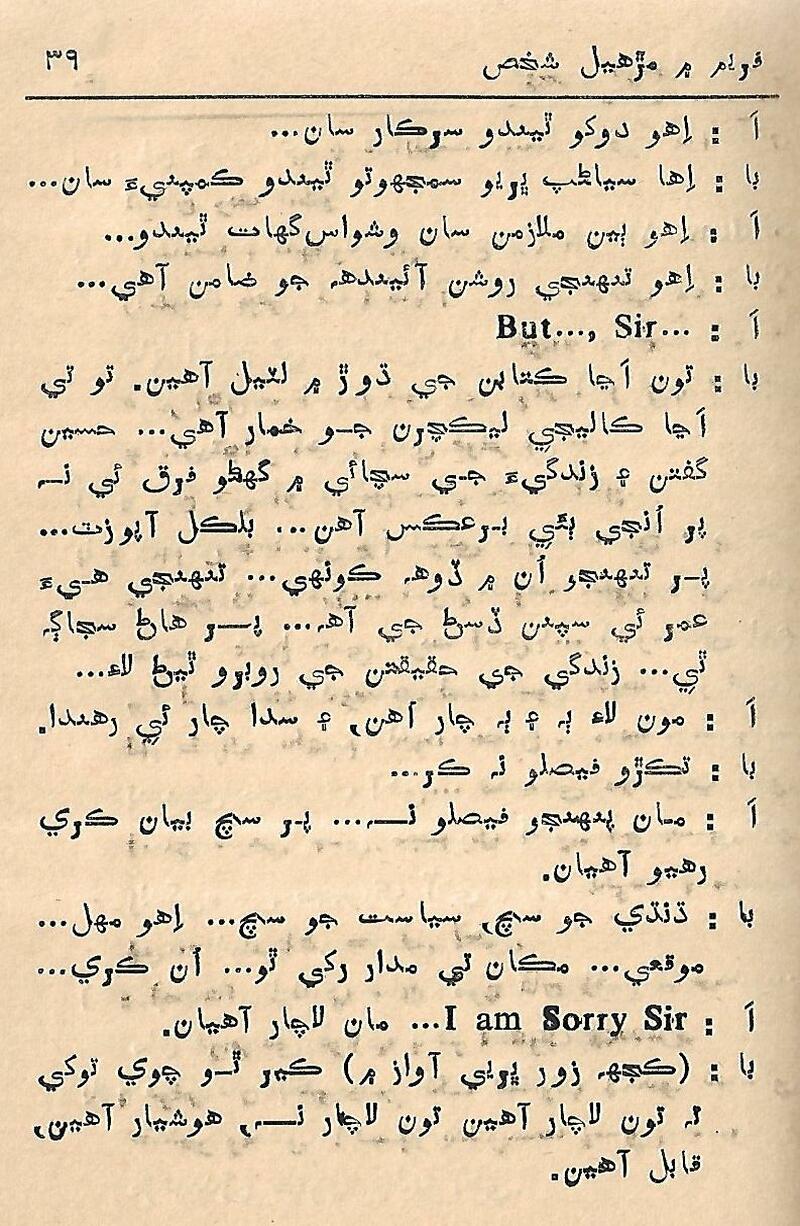 فريم ۾ مڙهيل شخص ٣٩
اَ : اِهو دوکو ٿيندو سرڪار سان...
با : اِها سياڻپ ڀريو سمجهوتو ٿيندو ڪمپنيءَ سان...
اَ : اِهو ٻين ملازمن سان وشواس گهات ٿيندو...
با : اِهو تنهنجي روشن آئيندهہ جو ضامن آهي...
اَ : But..., Sir...
با : تون اَڃا ڪتابن جي ڌوڙ ۾ لٽيل آهين. تو تي
اَڃا ڪاليجي ليڪچرن جو خمار آهي... حسين
گفتن ۽ زندگيءَ جي سچائي ۾ گهڻو فرق ئي نہ
پر اُنجي ٻئي برعڪس آهن... بلڪل آپوزٽ...
پر تنهنجو اُن ۾ ڏوهہ ڪونهي... تنهنجي هيءَ
عمر ئي سپنن ڏسڻ جي آهہ... پر هاڻ سجاڳہ
ٿي... زندگي جي حقيقتن جي روبرو ٿيڻ لاءِ...
اَ : مون لاءِ ٻہ ۽ ٻہ چار آهن، ۽ سدا چار ئي رهندا.
با : تڪڙو فيصلو نہ ڪر...
اَ : مان پنهنجو فيصلو نہ... پر سچ بيان ڪري
رهيو آهيان.
با : ڌنڌي جو سچ، سياست جو سچ... اِهو مهل...
موقعي... مڪان تي مدار رکي ٿو... اُن ڪري...
اَ : I am Sorry Sir... مان لاچار آهيان.
با : (ڪجهہ زور ڀريي آواز ۾) ڪير ٿو چوي توکي
تہ تون لاچار آهين تون لاچار نہ، هوشيار آهين،
قابل آهين.